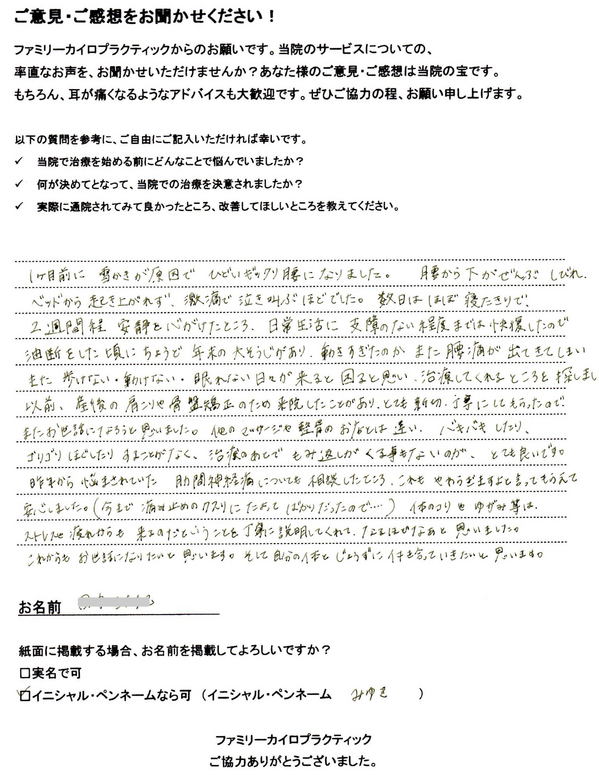 ご意見・ご感想をお聞かせください！
ファミリーカイロプラクティックからのお願いです。当院のサービスについての、
率直なお声を、お聞かせいただけませんか？あなた様のご意見・ご感想は当院の宝です。
もちろん、耳が痛くなるようなアドバイスも大歓迎です。ぜひご協力の程、お願い申し上げます。
以下の質問を参考に、ご自由にご記入いただければ幸いです。
✓ 当院で治療を始める前にどんなことで悩んでいましたか？
✓ 何が決めてとなって、当院での治療を決意されましたか？
✓ 実際に通院されてみて良かったところ、改善してほしいところを教えてください。
1ヶ月前に 雪かきが原因で ひどいギックリ腰になりました。 腰から下がぜんぶ しびれ、
ベッドから起き上がれず、激痛で 泣き叫ぶほどでした。 数日は ほぼ 寝たきりで、
2週間程 安静を心がけたところ、日常生活に 支障のない程度までは快復したので
油断をした頃にちょうど 年末の大そうじがあり、動きすぎたのか また 腰痛が 出てきてしまい
また 歩けない・動けない・眠れない日々が来ると 困ると思い、治療してくれるところを 探しまし
以前、産後の 肩こりや骨盤矯正のため 来院したことがあり、とても 親切、丁寧にしてもらったので
またお世話になろうと思いました。他のマッサージや 整骨の お店とは 違い、 バキバキ したり、
ゴリゴリ ほぐしたり することがなく、治療のあとで もみ返しが くる事もないのが、 とても良いです。
昨年から 悩まされていた 肋間神経痛についても 相談したところ、これも やわらぎますよと言ってもらえて
安心しました。（今まで 痛み止めのクスリにたよって ばかりだったので…） 体のコリや ゆがみ等は、
ストレスや 疲れからも 来るのだということを 丁寧に説明してくれて、なるほどなぁと 思いました。
これからも お世話になりたいと 思います。そして自分の体と じょうずに 付き合っていきたいと 思います。
お名前
紙面に掲載する場合、お名前を掲載してよろしいですか？
□実名で可
☑イニシャル・ペンネームなら可 （イニシャル・ペンネーム みゆき ）
ファミリーカイロプラクティック
ご協力ありがとうございました。